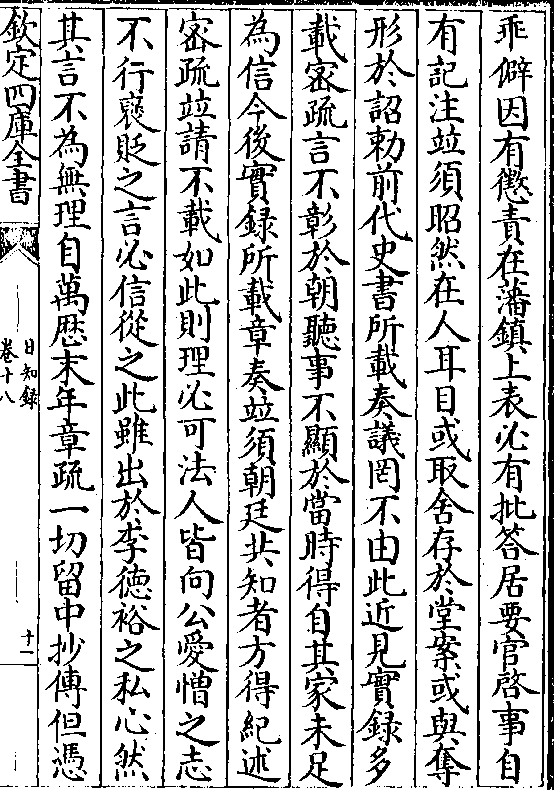 乖僻因有懲責在藩鎮上表必有批答居要官啓事自
有記注竝須昭然在人耳目或取舍存於堂案或與奪
形於詔勅前代史書所載奏議罔不由此近見實録多
載密疏言不彰於朝聽事不顯於當時得自其家未足
為信今後實録所載章奏竝須朝廷共知者方得紀述
密疏竝請不載如此則理必可法人皆向公愛憎之志
不行褒貶之言必信從之此雖出於李徳裕之私心然
其言不為無理自萬歴末年章疏一切留中抄傳但憑
欽定四庫全書
日知錄
卷十八
十二